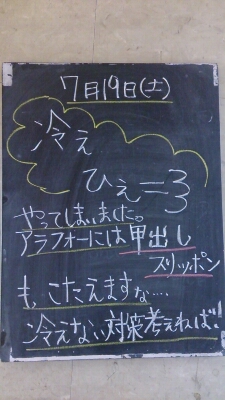 7月19日(土)
冷え
ひえ=3
やってしまいました。
アラフォーには甲出し
スリッポン
も、こたえますな....
冷えない対策考えねば!